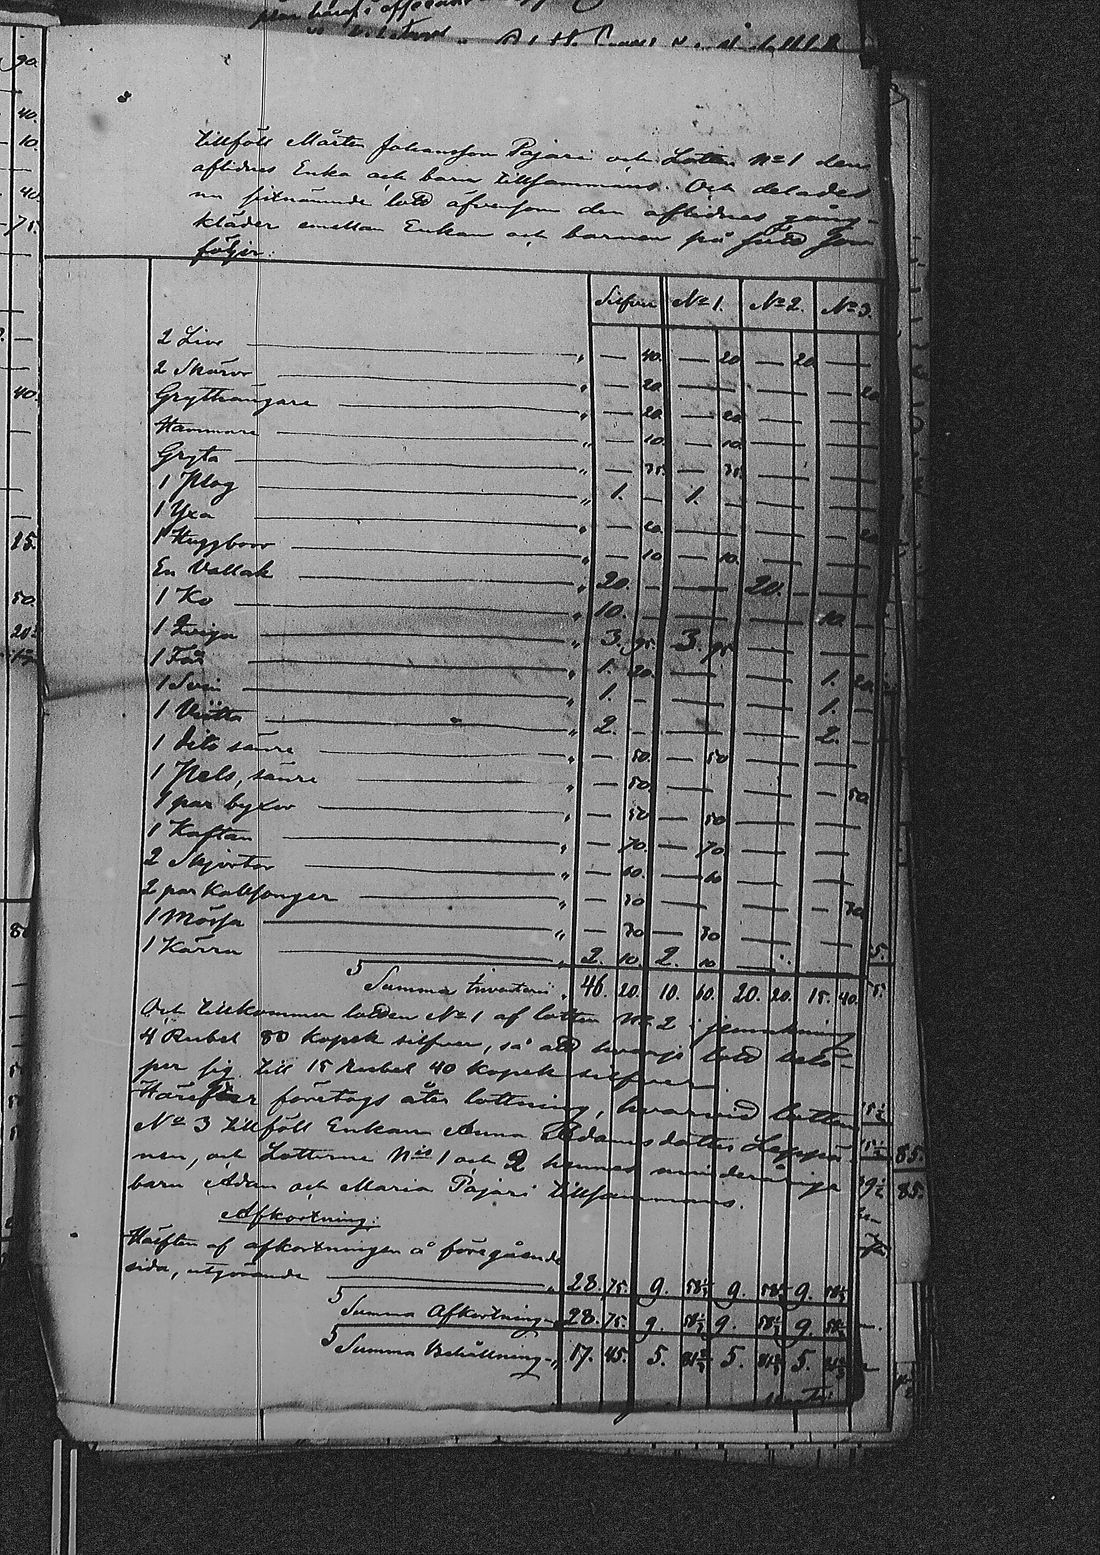 tillföll Mårten Johansson Pajari och Lotten No 1 dens
aflidnes Enka och barn tillsammans. Och delades
nu sistnämnde lott äfvensom den aflidnes gång-
kläder emellan Enkan och barnen på sätt som
följer:
Silfver No 1. No 2. No 3.
2 Liar " — 40. — 20 — 20 — —
2 Skäror " — 20. — — — — — 20
Grythängare " — 20. — 20. — — — —
Hammare " — 10. — 10. — — — —
Gryta " — 75. — 75. — — — —
1 Plog " 1. — 1. — — — — —
1 Yxa " — 20. — — — — — 20
1 Huggborr " — 10. — 10. — — — —
En Vallak " 20. — — — 20. — — —
1 Ko " 10. — — — — — 10. —
1 Qviga " 3. 95. 3. 95. — — — —
1 Får " 1. 20. — — — — 1. 20
1 Svin " 1. — — — — — 1. —
1 " 2. — — — — — 2. —
1 dito sämre " — 50. — 50 — — — —
1 Pels, sämre " — 50. — — — — — 50.
1 par byxor " — 50 — 50. — — — —
1 Kaftan " — 70. — 70. — — — —
2 Skjortor " — 60. — 60 — — — —
2 par Kallsonger " — 50 — — — — — 50
1 Mössa " — 30 — 30 — — — —
1 Kärra " 2. 10. 2. 10 — — — —
Summa Inventarii " 46. 20. 10. 60. 20. 20. 15. 40.
Och tillkommer lotten No 1 af lotten No 2 i jemnkning
4 Rubel 80 kopek silfver, så att hvarje lott belö-
per sig till 15 rubel 40 kopek silfver.
Härefter företogs åter lottning, hvarvid lotten
No 3 tillföll Enkan Anna Adamsdotter Leppä-
nen, och Lotterne No 1 och 2 hennes minderåriga
barn Adam och Maria Pajari tillsammans.
Afkortning:
Hälften af afkortningen å föregående
sida, utgörande " 28. 75. 9. 58 1/3 9. 58 1/3 9. 58 1/3
Summa Afkortning " 28. 75. 9. 58 1/3 9. 58 1/3 9. 58 1/3
Summa Behållning " 17. 45. 5. 81 2/3 5. 81 2/3 5. 81 2/3